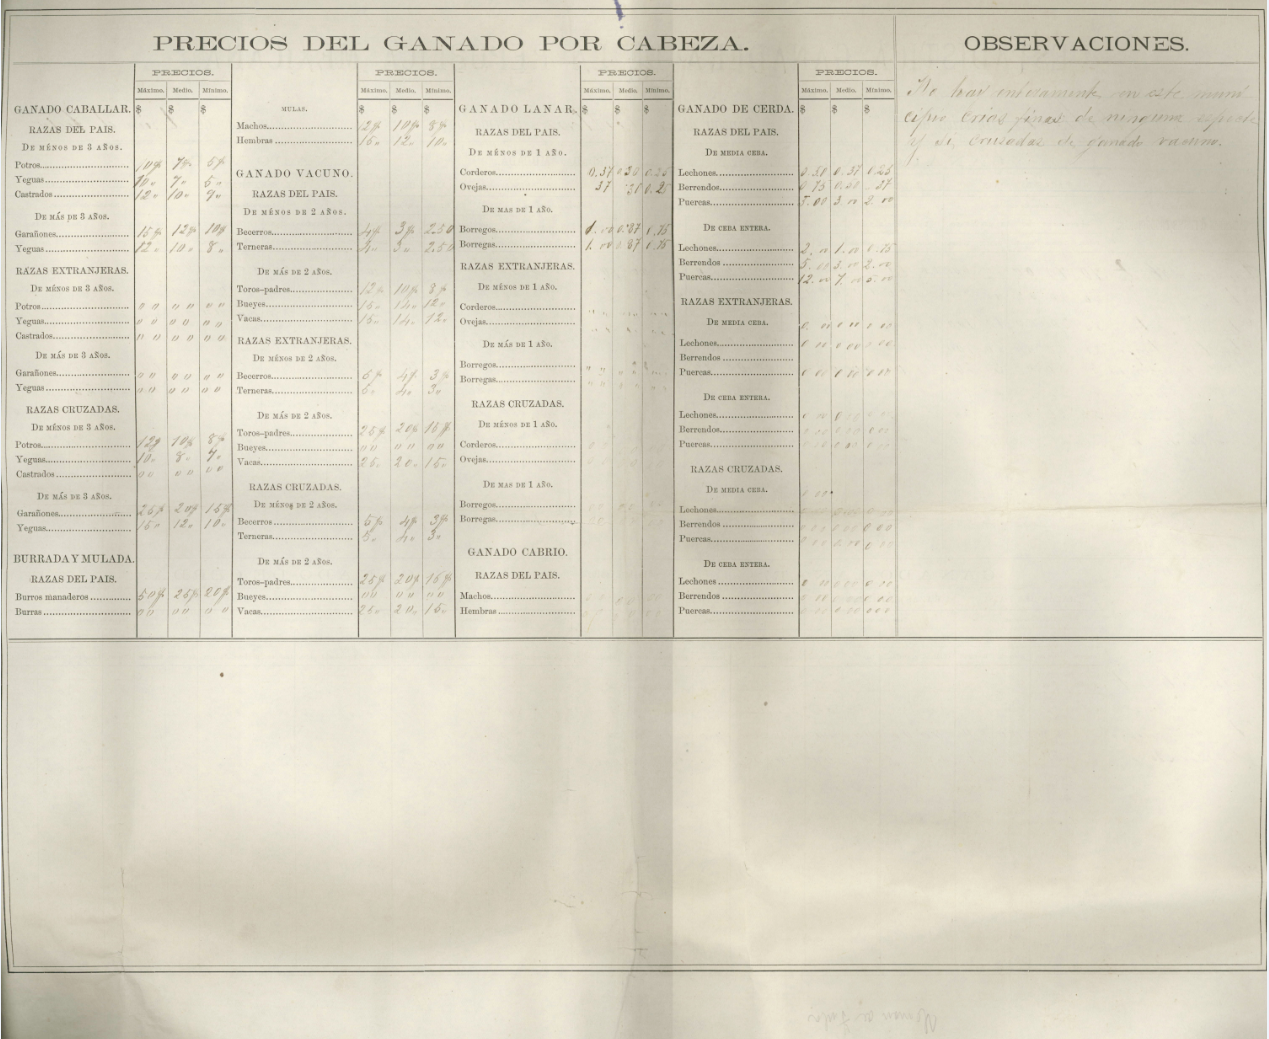 PRECIOS DEL GANADO POR CABEZA.
OBSERVACIONES.
PRECIOS.
Máximo. Medio. Mínimo.
GANADO CABALLAR. $ $ $
RAZAS DEL PAIS.
DE MÉNOS DE 3 AÑOS.
Potros 10$ 7$ 5$
Yeguas 10" 7" 5"
Castrados 12" 10" 9"
DE MÁS DE 3 AÑOS.
Garañones 15$ 12$ 10$
Yeguas 12" 10" 8"
RAZAS EXTRANJERAS.
DE MÉNOS DE 3 AÑOS.
Potros " " " " " "
Yeguas " " " " " "
Castrados " " " " " "
DE MÁS DE 3 AÑOS.
Garañones " " " " " "
Yeguas " " " " " "
RAZAS CRUZADAS.
DE MÉNOS DE 3 AÑOS.
Potros 12$ 10$ 8$
Yeguas 10" 8" 7"
Castrados " " " " " "
DE MÁS DE 3 AÑOS.
Garañones 25$ 20$ 15$
Yeguas 15" 12" 10"
BURRADA Y MULADA.
RAZAS DEL PAIS.
Burros manaderos 50$ 25$ 20$
Burras " " " " " "
PRECIOS.
Máximo. Medio. Mínimo.
MULAS. $ $ $
Machos 12$ 10$ 8$
Hembras 15" 12" 10"
GANADO VACUNO.
RAZAS DEL PAIS.
DE MÉNOS DE 2 AÑOS.
Becerros 4$ 3$ 2.50
Terneras 4" 3" 2.50
DE MÁS DE 2 AÑOS.
Toros-padres 12$ 10$ 8$
Bueyes 15" 14" 12"
Vacas 15" 14" 12"
RAZAS EXTRANJERAS.
DE MÉNOS DE 2 AÑOS.
Becerros 5$ 4$ 3$
Terneras 5" 4" 3"
DE MÁS DE 2 AÑOS.
Toros-padres 25$ 20$ 15$
Bueyes " " " " " "
Vacas 25" 20" 15"
RAZAS CRUZADAS.
DE MÉNOS DE 2 AÑOS.
Becerros 5$ 4$ 3$
Terneras 5" 4" 3"
DE MÁS DE 2 AÑOS.
Toros-padres 25$ 20$ 15$
Bueyes " " " " " "
Vacas 25" 20" 15"
PRECIOS.
Máximo. Medio. Mínimo.
GANADO LANAR. $ $ $
RAZAS DEL PAIS.
DE MÉNOS DE 1 AÑO.
Corderos 0.37 0.30 0.25
Ovejas 37 30 0.25
DE MAS DE 1 AÑO.
Borregos 1.00 0.87 0.75
Borregas 1.00 0.87 0.75
RAZAS EXTRANJERAS.
DE MÉNOS DE 1 AÑO.
Corderos
Ovejas
DE MÁS DE 1 AÑO.
Borregos
Borregas
RAZAS CRUZADAS.
DE MÉNOS DE 1 AÑO.
Corderos
Ovejas
DE MAS DE 1 AÑO.
Borregos
Borregas
GANADO CABRIO.
RAZAS DEL PAIS.
Machos
Hembras
PRECIOS.
Máximo. Medio. Mínimo.
GANADO DE CERDA. $ $ $
RAZAS DEL PAIS.
DE MEDIA CEBA.
Lechones 0.50 0.37 0.25
Berrendos 0.75 0.50 .37
Puercas 5.00 3.00 2.00
DE CEBA ENTERA.
Lechones 2.00 1.00 0.75
Berrendos 5.00 3.00 2.00
Puercas 12.00 7.00 5.00
RAZAS EXTRANJERAS.
DE MEDIA CEBA.
Lechones
Berrendos
Puercas
DE CEBA ENTERA.
Lechones
Berrendos
Puercas
RAZAS CRUZADAS.
DE MEDIA CEBA.
Lechones
Berrendos
Puercas
DE CEBA ENTERA.
Lechones
Berrendos
Puercas
No hai enteramente en este muni
cipio crias finas de ninguna especie
y si, crusadas de ganado vacuno.